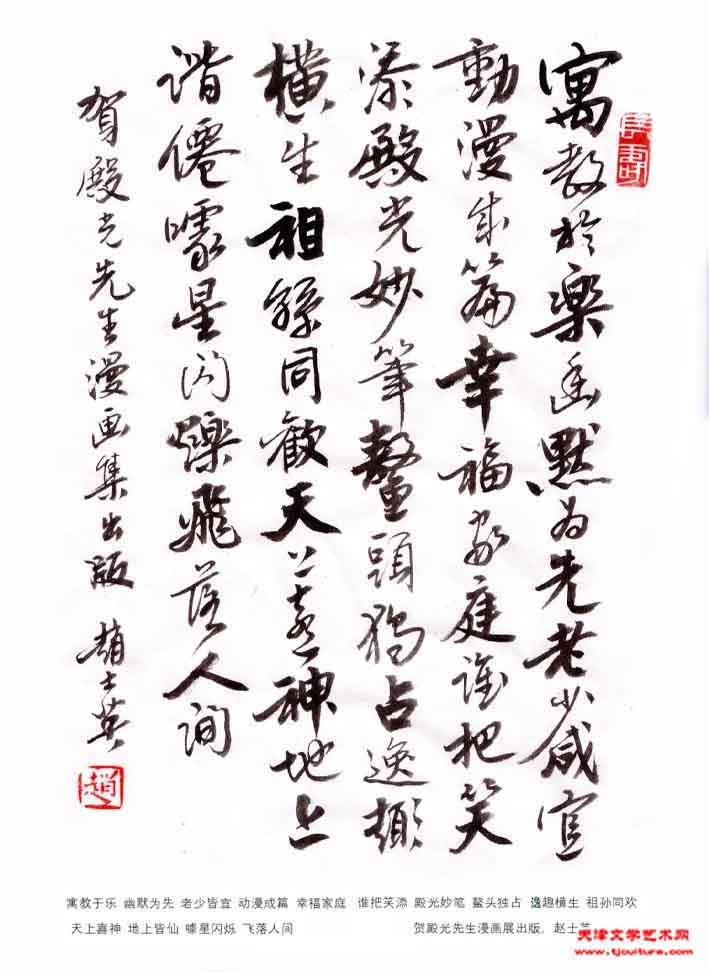 寓教於楽幽默为先老少咸宜
動漫成篇幸福家庭誰把笑
添殿光妙筆鰲頭獨占逸趣
横生祖孫同歡天上喜神地上
谐僊噱星闪爍飛落人间
賀殿光先生漫画集出版 趙士英
趙
寓教于乐 幽默为先 老少皆宜 动漫成篇 幸福家庭 谁把笑添 殿光妙笔 鳌头独占 逸趣横生 祖孙同欢
天上喜神 地上皆仙 噱星闪烁 飞落人间 贺殿光先生漫画展出版，赵士英
天津文学艺术网
www.tjculture.com